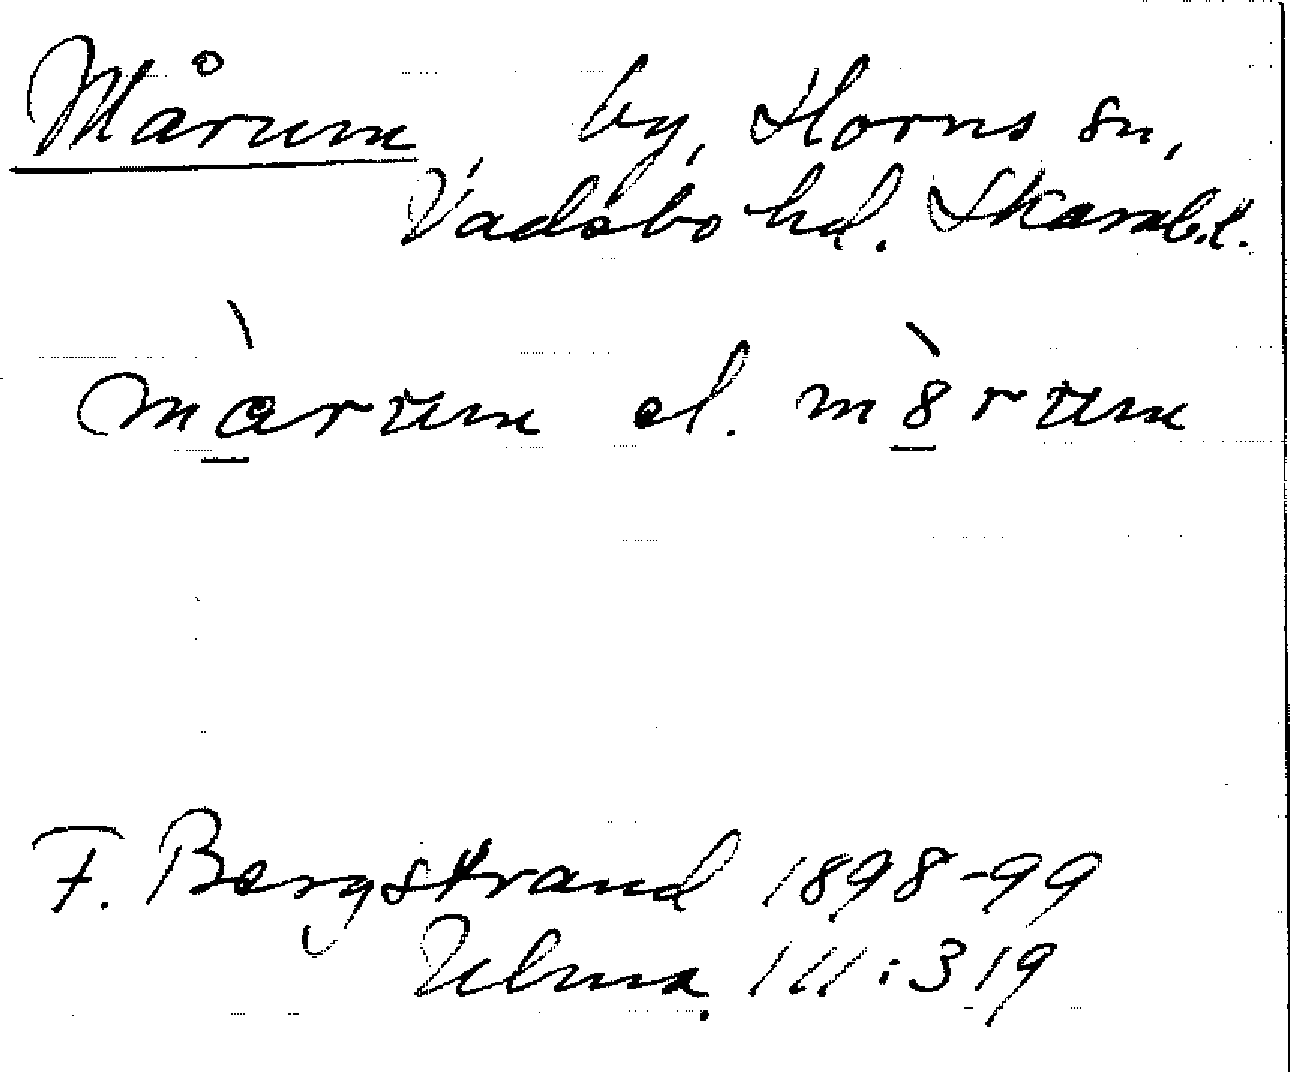 Mårum, by, Horns sn,
Vadsbo hd. Skarab.l.
màrum el. mòrum
F. Bergstrand 1898-99
Ulma 111:319